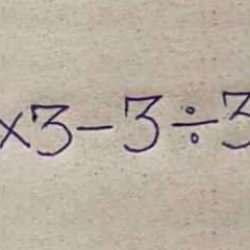 ×3-3÷3